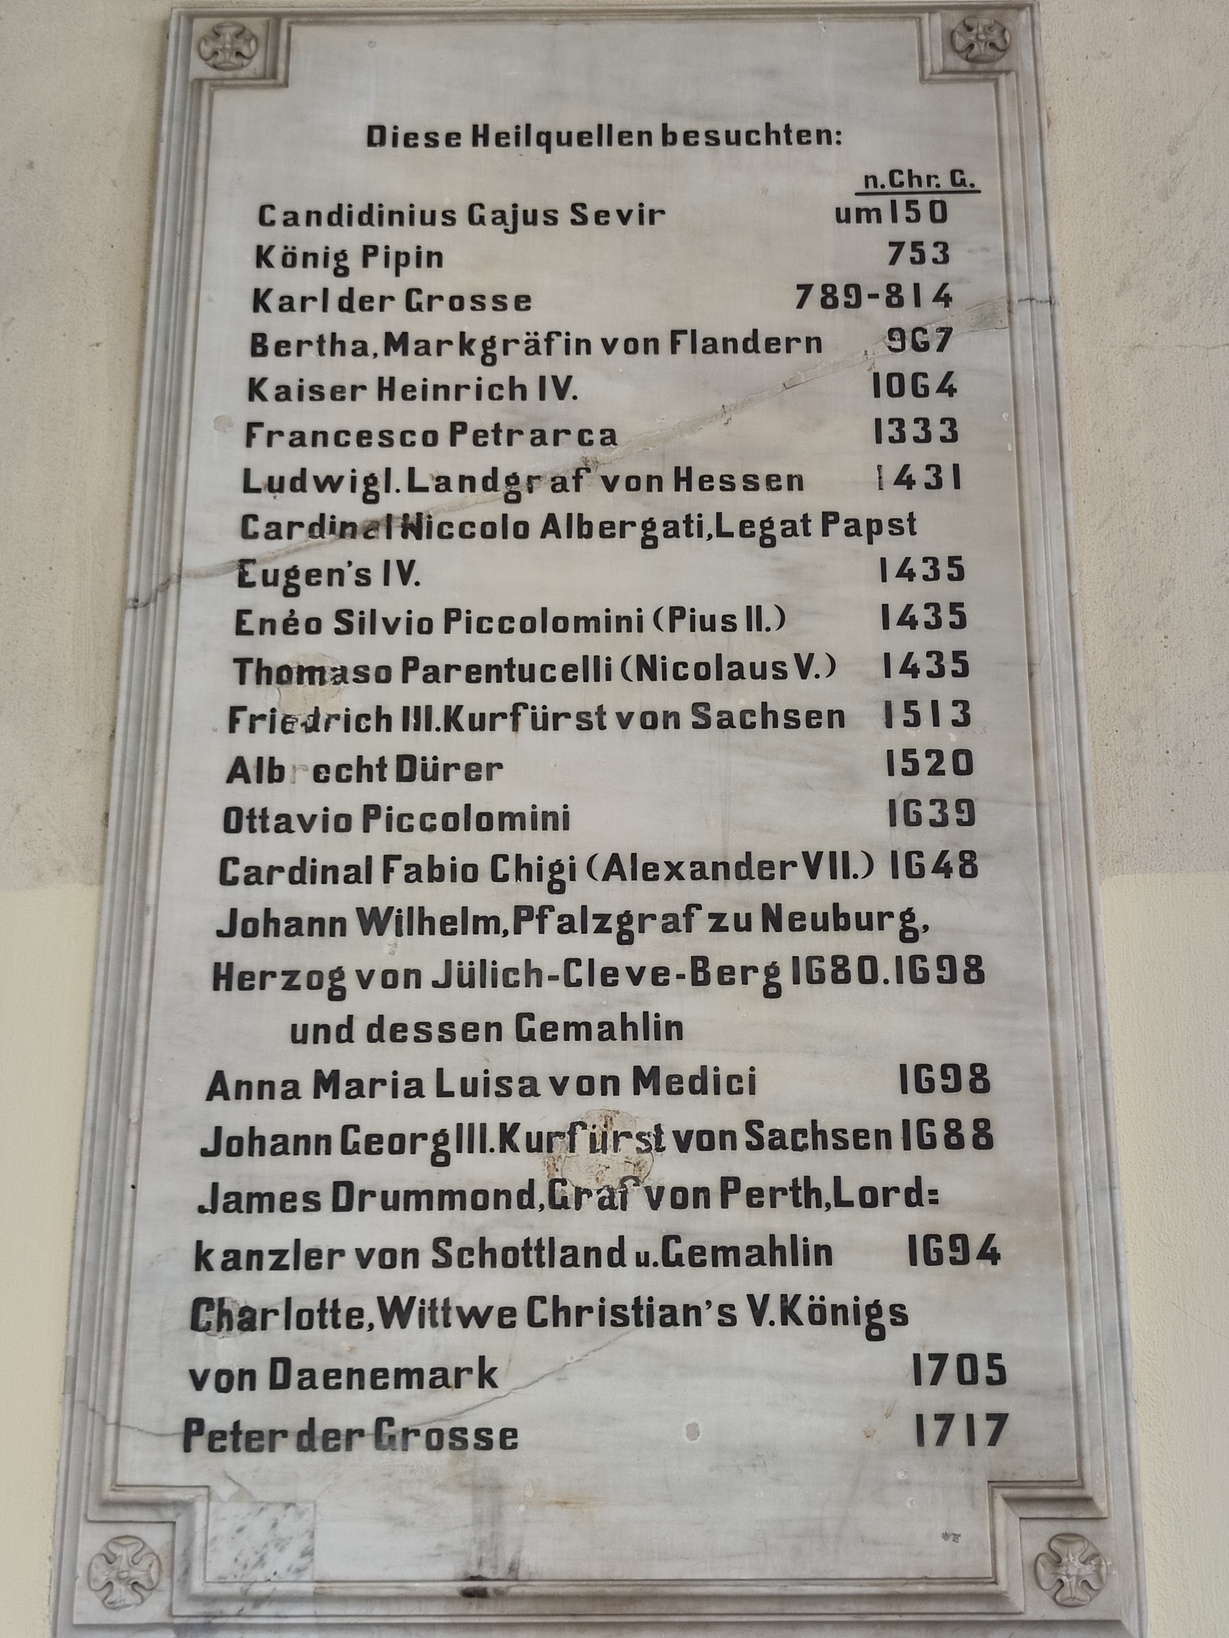 Diese Heilquellen besuchten:
n. Chr. G.
Candidinius Gajus Sevir um 150
König Pipin 753
Karl der Grosse 789-814
Bertha, Markgräfin von Flandern 967
Kaiser Heinrich IV. 1064
Francesco Petrarca 1333
Ludwig I. Landgraf von Hessen 1431
Cardinal Niccolo Albergati, Legat Papst
Eugen's IV. 1435
Enéo Silvio Piccolomini (Pius II.) 1435
Thomaso Parentucelli (Nicolaus V.) 1435
Friedrich III. Kurfürst von Sachsen 1513
Albrecht Dürer 1520
Ottavio Piccolomini 1639
Cardinal Fabio Chigi (Alexander VII.) 1648
Johann Wilhelm, Pfalzgraf zu Neuburg,
Herzog von Jülich-Cleve-Berg 1680.1698
und dessen Gemahlin
Anna Maria Luisa von Medici 1698
Johann Georg III. Kurfürst von Sachsen 1688
James Drummond, Graf von Perth, Lord=
kanzler von Schottland u. Gemahlin 1694
Charlotte, Wittwe Christian's V. Königs
von Daenemark 1705
Peter der Grosse 1717